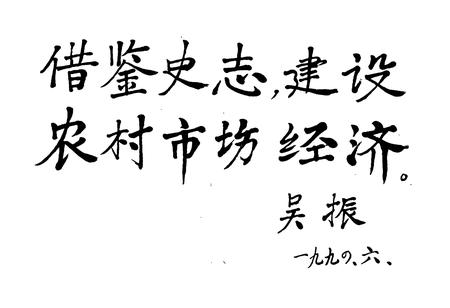 借鉴史志,建设
农村市场经济。
吴振
一九九〇、六、